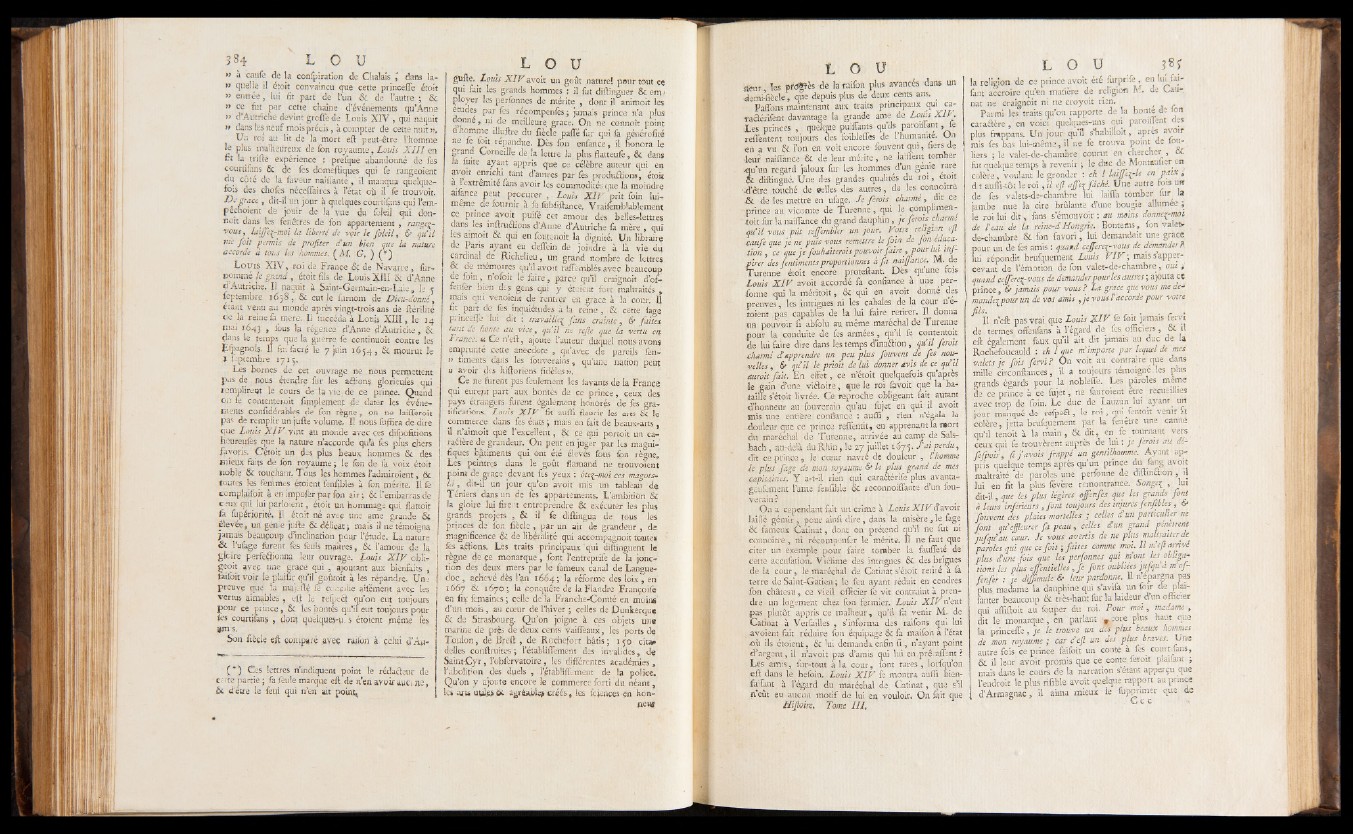 384 L O U
» à cause de la conspiration de Chalais ; dans la-
» quelle il étoit convaincu que cette princesse étoit
» entrée, lui fit part de l'un & de l'autre ; &
» ce fut par cette chaîne d'événements qu'Anne
» d'Autriche devint grosse de Louis XIV, qui naquit
» dans les neuf mois précis, à compter de cette nuit ».
Un roi au lit de la mort est peut-être l'homme
le plus malheureux de son royaume, Louis XIII en
fit la triste expérience : presque abandonné de ses
courtisans & de ses domestiques qui se rangeoient
du côté de la faveur naissante, il manqua quelque-
fois des choses nécessaires à l'état où il se trouvoit.
De grace, dit-il un jour à quelques courtisans qui l'em-
pêchoient de jouir de la vue du soleil qui don-
noit dans les fenêtres de son appartement, rangez-
vous, laissez-moi la liberté de voir le soleil, & qu'il
me soit permis de profiter d'un bien que la nature
accorde à tous les hommes. ( M. G. ) (*)
LOUIS XIV, roi de France & de Navarre, sur-
nommé le grand, étoit fils de Louis XIII & d'Anne
d'Autriche. Il naquit à Saint-Germain-en-Laie, le 5
septembre 1638, & eut le surnom de Dieu-donné,
étant venu au monde après vingt-trois ans de stérilité
de la reine sa mere. Il succéda à Louis XIII, le 14
mai 1643, sous la régence d'Anne d'Autriche, &
dans le temps que la guerre se continuoit contre les
Espagnols. Il fut sacré le 7 juin 1654, & mourut le
1 septembre 1715.
Les bornes de cet ouvrage ne nous permettent
pas de nous étendre sur les actions glorieuses qui
remplirent le cours de la vie de ce prince. Quand
on se contenteroit simplement de dater les événe-
ments considérables de son règne, on ne laisseroit
pas de remplir un juste volume. Il nous suffira de dire
que Louis XIV vint au monde avec ces dispositions
heureuses que la nature n'accorde qu'à ses plus chers
favoris. C'étoit un des plus beaux hommes & des
mieux faits de son royaume ; le son de sa voix étoit
noble & touchant. Tous les hommes l'admiroient, &
toutes les femmes étoient sensibles à son mérite. Il se
complaisoit à en imposer par son air ; & l'embarras de
ceux qui lui parloient, étoit un hommage qui flattoit
sa supériorité. Il étoit né avec une ame grande &
élevée, un genie juste & délicat, mais il ne témoigna
jamais beaucoup d'inclination pour l'étude. La nature
& l'usage furent ses seuls maîtres, & l'amour de la
gloire perfectionna leur ouvrage. Louis XIV obli-
geoit avec une grace qui, ajoutant aux bienfaits,
faisoit voir le plaisir qu'il goûtoit à les répandre. Une
preuve que la majesté se concilie aisément avec les
vertus aimables, est le respect qu'on eut toujours
pour ce prince, & les bontés qu'il eut toujours pour
ses courtisans, dont quelques-uns étoient même ses
amis.
Son siècle est comparé avec raison à celui d'Au-
(*) Ces lettres n'indiquent point le rédacteur de
cette partie ; sa seule marque est de n'en avoir aucune,
& d'être le seul qui n'en ait point.
L O U
guste. Louis XIV avoit un goût naturel pour tout ce
qui fait les grands hommes : il sut distinguer & em-
ployer les personnes de mérite, dont il animoit les
études par ses récompenses ; jamais prince n'a plus
donné, ni de meilleure grace. On ne connoît point
d'homme illustre du siècle passé sur qui sa générosité
ne se soit répandue. Dès son enfance, il honora le
grand Corneille de la lettre la plus flatteuse, & dans
la suite ayant appris que ce célèbre auteur qui en
avoit enrichi tant d'autres par ses productions, étoit
à l'extrêmité sans avoir les commodités que la moindre
aisance peut procurer, Louis XIV prit soin lui-
même de fournir à sa subsistance. Vraisemblablement
ce prince avoit puisé cet amour des belles-lettres
dans les instructions d'Anne d'Autriche sa mère, qui
les aimoit & qui en soutenoit la dignité. Un libraire
de Paris ayant eu dessein de joindre à la vie du
cardinal de Richelieu, un grand nombre de lettres
& de mémoires qu'il avoit rassemblés avec beaucoup
de soin, n'osoit le faire, parce qu'il craignoit d'of-
fenser bien des gens qui y étoient fort maltraités &
mais qui venoient de rentrer en grace à la cour. Il
fit part de ses inquiétudes à la reine, & cette sage
princesse lui dit : travaillez sans crainte, & faites
tant de honte au vice, qu'il ne reste que la vertu en
France. « Ce n'est, ajoute l'auteur duquel nous avons
emprunté cette anecdote, qu'avec de pareils sen-
» timents dans les souverains, qu'une nation peut
» avoir des historiens fidèles ».
Ce ne furent pas seulement les savants de la France
qui eurent part aux bontés de ce prince, ceux des
pays étrangers furent également honorés de ses gra-
tifications. Louis XIV fit aussi fleurir les arts & le
commerce dans ses états ; mais en fait de beaux-arts,
il n'aimoit que l'excellent, & ce qui portoit un ca-
ractère de grandeur. On peut en juger par les magni-
fiques bâtiments qui ont été élevés sous son règne.
Les peintres dans le goût flamand ne trouvoient
point de grace devant ses yeux : ôtez-moi ces magots-
là, dit-il un jour qu'on avoit mis un tableau de
Téniers dans un de ses appartements. L'ambition &
la gloire lui fire t entreprendre & exécuter les plus
grands projets, & il se distingua de tous les
princes de son siècle, par un air de grandeur, de
magnificence & de libéralité qui accompagnoit toutes
ses actions. Les traits principaux qui distinguent le
règne de ce monarque, sont l'entreprise de la jonc-
tion des deux mers par le fameux canal de Langue-
doc, achevé dès l'an 1664 ; la réforme des loix, en
1667 & 1670 ; la conquête de la Flandre Françoise
en six semaines ; celle de la Franche-Comté en moins
d'un mois, au cœur de l'hiver ; celles de Dunkerque
& de Strasbourg. Qu'on joigne à ces objets une
marine de près de deux cents vaisseaux, les ports de
Toulon, de Brest, de Rochefort bâtis ; 150 cita-
delles construites ; l'établissement des invalides, de
Saint-Cyr, l'observatoire, les différentes académies,
l'abolition des duels, l'établissement de la police.
Qu'on y ajoute encore le commerce sorti du néant,
les arts utiles & agréables créés, les sciences en hon-
neur
L O U
neur, les progrès de la raison plus avancés dans un
demi-siècle, que depuis plus de deux cents ans.
Passons maintenant aux traits principaux qui ca-
ractérisent davantage la grande ame de Louis XIV.
Les princes, quelque puissants qu'ils paroissent, se
ressentent toujours des foiblesses de l'humanité. On
en a vu & l'on en voit encore souvent qui, fiers de
leur naissance & de leur mérite, ne laissent tomber
qu'un regard jaloux sur les hommes d'un génie rare
& distingué. Une des grandes qualités du roi, étoit
d'être touché de celles des autres, de les connoître
& de les mettre en usage. Je serois charmé, dit ce
prince au vicomte de Turenne, qui le complimen-
toit sur la naissance du grand dauphin, je serois charmé
qu'il vous pût ressembler un jour. Votre religion est
cause que je ne puis vous remettre le soin de son éduca-
tion, ce que je souhaiterois pouvoir faire, pour lui ins-
pirer des sentiments proportionnés à sa naissance. M. de
Turenne étoit encore protestant. Dès qu'une fois
Louis XIV avoit accordé sa confiance à une per-
sonne qui la méritoit, & qui en avoit donné des
preuves, les intrigues ni les cabales de la cour n'é-
toient pas capables de la lui faire retirer. Il donna
un pouvoir si absolu au même maréchal de Turenne
pour la conduite de ses armées, qu'il se contentoit
de lui faire dire dans les temps d'inaction, qu'il seroit
charmé d'apprendre un peu plus souvent de ses nou-
velles, & qu'il le prioit de lui donner avis de ce qu'il
auroit fait. En effet, ce n'étoit quelquefois qu'après
le gain d'une victoire, que le roi savoit que la ba-
taille s'étoit livrée. Ce reproche obligeant fait autant
d'honneur au souverain qu'au sujet en qui il avoit
mis une entière confiance : aussi, rien n'égala la
douleur que ce prince ressentit, en apprenant la mort
du maréchal de Turenne, arrivée au camp de Sals-
bach, au-delà du Rhin, le 27 juillet 1675. J'ai perdu,
dit ce prince, le cœur navré de douleur, l'homme
le plus sage de mon royaume & le plus grand de mes
capitaines. Y a-t-il rien qui caractérise plus avanta-
geusement l'ame sensible & reconnoissante d'un sou-
verain ?
On a cependant fait un crime à Louis XIV d'avoir
laissé gémir, pour ainsi dire, dans la misère, le sage
& fameux Catinat, dont on prétend qu'il ne sut ni
connoître, ni récompenser le mérite. Il ne faut que
citer un exemple pour faire tomber la fausseté de
cette accusation. Victime des intrigues & des brigues
de la cour, le maréchal de Catinat s'étoit retiré à sa
terre de Saint-Gatien ; le feu ayant réduit en cendres
son château, ce vieil officier se vit contraint à pren-
dre un logement chez son fermier. Louis XIV n'eut
pas plutôt appris ce malheur, qu'il fit venir M. de
Catinat à Versailles, s'informa des raisons qui lui
avoient fait réduire son équipage & sa maison à l'état
où ils étoient, & lui demanda enfin si, n'ayant point
d'argent, il n'avoit pas d'amis qui lui en prêtassent ?
Les amis, sur-tout à la cour, sont rares, lorsqu'on
est dans le besoin. Louis XIV se montra aussi bien-
faisant à l'égard du maréchal de Catinat, que s'il
n'eût eu aucun motif de lui en vouloir. On sait que
Histoire. Tome III.
L O U 385
la religion de ce prince avoit été surprise, en lui fai-
sant accroire qu'en matière de religion M. de Cati-
nat ne craignoit ni ne croyoit rien.
Parmi les traits qu'on rapporte de la bonté de son
caractère, en voici quelques-uns qui paroissent des
plus frappans. Un jour qu'il s'habilloit, après avoir
mis ses bas lui-même, il ne se trouva point de sou-
liers ; le valet-de-chambre courut en chercher, &
fut quelque temps à revenir ; le duc de Montausier en
colère, voulant le gronder : eh ! laissez-le en paix,
dit aussi-tôt le roi, il est assez fâché. Une autre fois un
de ses valets-de-chambre lui laissa tomber sur la
jambe nue la cire brûlante d'une bougie allumée ;
le roi lui dit, sans s'émouvoir : au moins donnez-moi
de l'eau de la reine-d'Hongrie. Bontems, son valet-
de-chambre & son favori, lui demandoit une grace
pour un de ses amis : quand cesserez-vous de demander ?
lui répondit brusquement Louis XIV ; mais s'apper-
cevant de l'émotion de son valet-de-chambre, oui,
quand cesserez-vous de demander pour les autres ; ajouta ce
prince, & jamais pour vous ? La grace que vous me de-
mandez pour un de vos amis, je vous l'accorde pour votre
fils.
Il n'est pas vrai que Louis XIV se soit jamais servi
de termes offensans à l'égard de ses officiers, & il
est également faux qu'il ait dit jamais au duc de la
Rochefoucauld : eh ! que m'importe par lequel de mes
valets je sois servi ? On voit au contraire que dans
mille circonstances, il a toujours témoigné les plus
grands égards pour la noblesse. Les paroles même
de ce prince à ce sujet, ne sauroient être recueillies
avec trop de soin. Le duc de Lauzun lui ayant un
jour manqué de respect, le roi, qui sentoit venir sa
colère, jetta brusquement par la fenêtre une canne
qu'il tenoit à la main, & dit, en se tournant vers
ceux qui se trouvèrent auprès de lui : je serois au dé-
sespoir, si j'avois frappé un gentilhomme. Ayant ap-
pris quelque temps après qu'un prince du sang avoit
maltraité de paroles une personne de distinction, il
lui en fit la plus sevère remontrance. Songez, lui
dit-il, que les plus légères offenses que les grands font
à leurs inférieurs, sont toujours des injures sensibles, &
souvent des plaies mortelles ; celles d'un particulier ne
font qu'effleurer sa peau, celles d'un grand pénètrent
jusqu'au cœur. Je vous avertis de ne plus maltraiter de
paroles qui que ce soit ; faites comme moi. Il m'est arrivé
plus d'une fois que les personnes qui m'ont les obliga-
tions les plus essentielles, se sont oubliées jusqu'à m'of-
fenser : je dissimule & leur pardonne. Il n'épargna pas
plus madame la dauphine qui s'avisa un soir de plai-
santer beaucoup & très-haut sur la laideur d'un officier
qui assistoit au souper du roi. Pour moi, madame,
dit le monarque, en parlant core plus haut que
la princesse, je le trouve un des plus beaux hommes
de mon royaume ; car c'est un des plus braves. Une
autre fois ce prince faisoit un conte à ses courtisans,
& il leur avoit promis que ce conte seroit plaisant ;
mais dans le cours de la narration s'étant apperçu que
l'endroit le plus risible avoit quelque rapport au prince
d'Armagnac, il aima mieux le supprimer que de
C c c